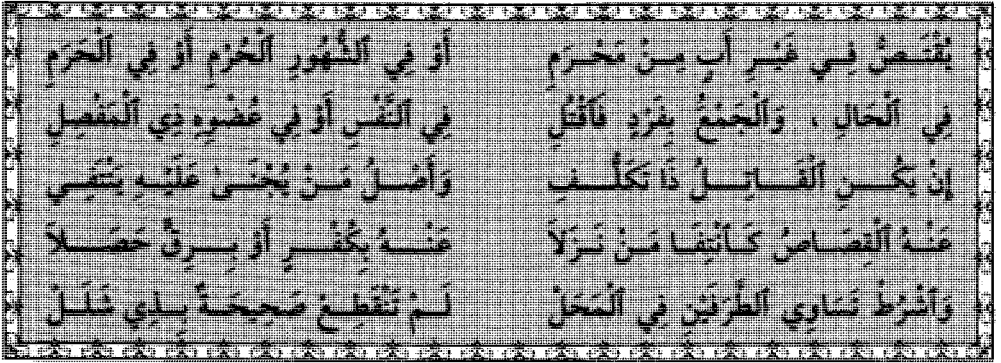 يُقْتَصُّ فِي غَيْرِ أَبٍ مِنْ مَحْرَمِ أَوْ فِي ٱلشُّهُورِ ٱلْحُرْمِ أَوْ فِي ٱلْحَرَمِ
فِي ٱلْحَالِ ، وَٱلْجَمْعُ بِفَرْدٍ فَٱقْتُلِ فِي ٱلنَّفْسِ أَوْ فِي عُضْوِهِ ذِي ٱلْمَفْصِلِ
إِنْ يَكُنِ ٱلْقَاتِلُ ذَا تَكَلُّفِ وَأَصْلُ مَنْ يُجْنَىٰ عَلَيْهِ يَنْتَفِي
عَنْهُ ٱلْقِصَاصُ كَٱنْتِفَا مَنْ نَزَلاَ عَنْهُ بِكُفْرٍ أَوْ بِرِقٍّ حَصَلاَ
وَٱشْرُطْ تَسَاوِي ٱلطَّرَفَيْنِ فِي ٱلْمَحَلْ لَمْ تَنْقَطِعْ صَحِيحَةٌ بِذِي شَلَلْ